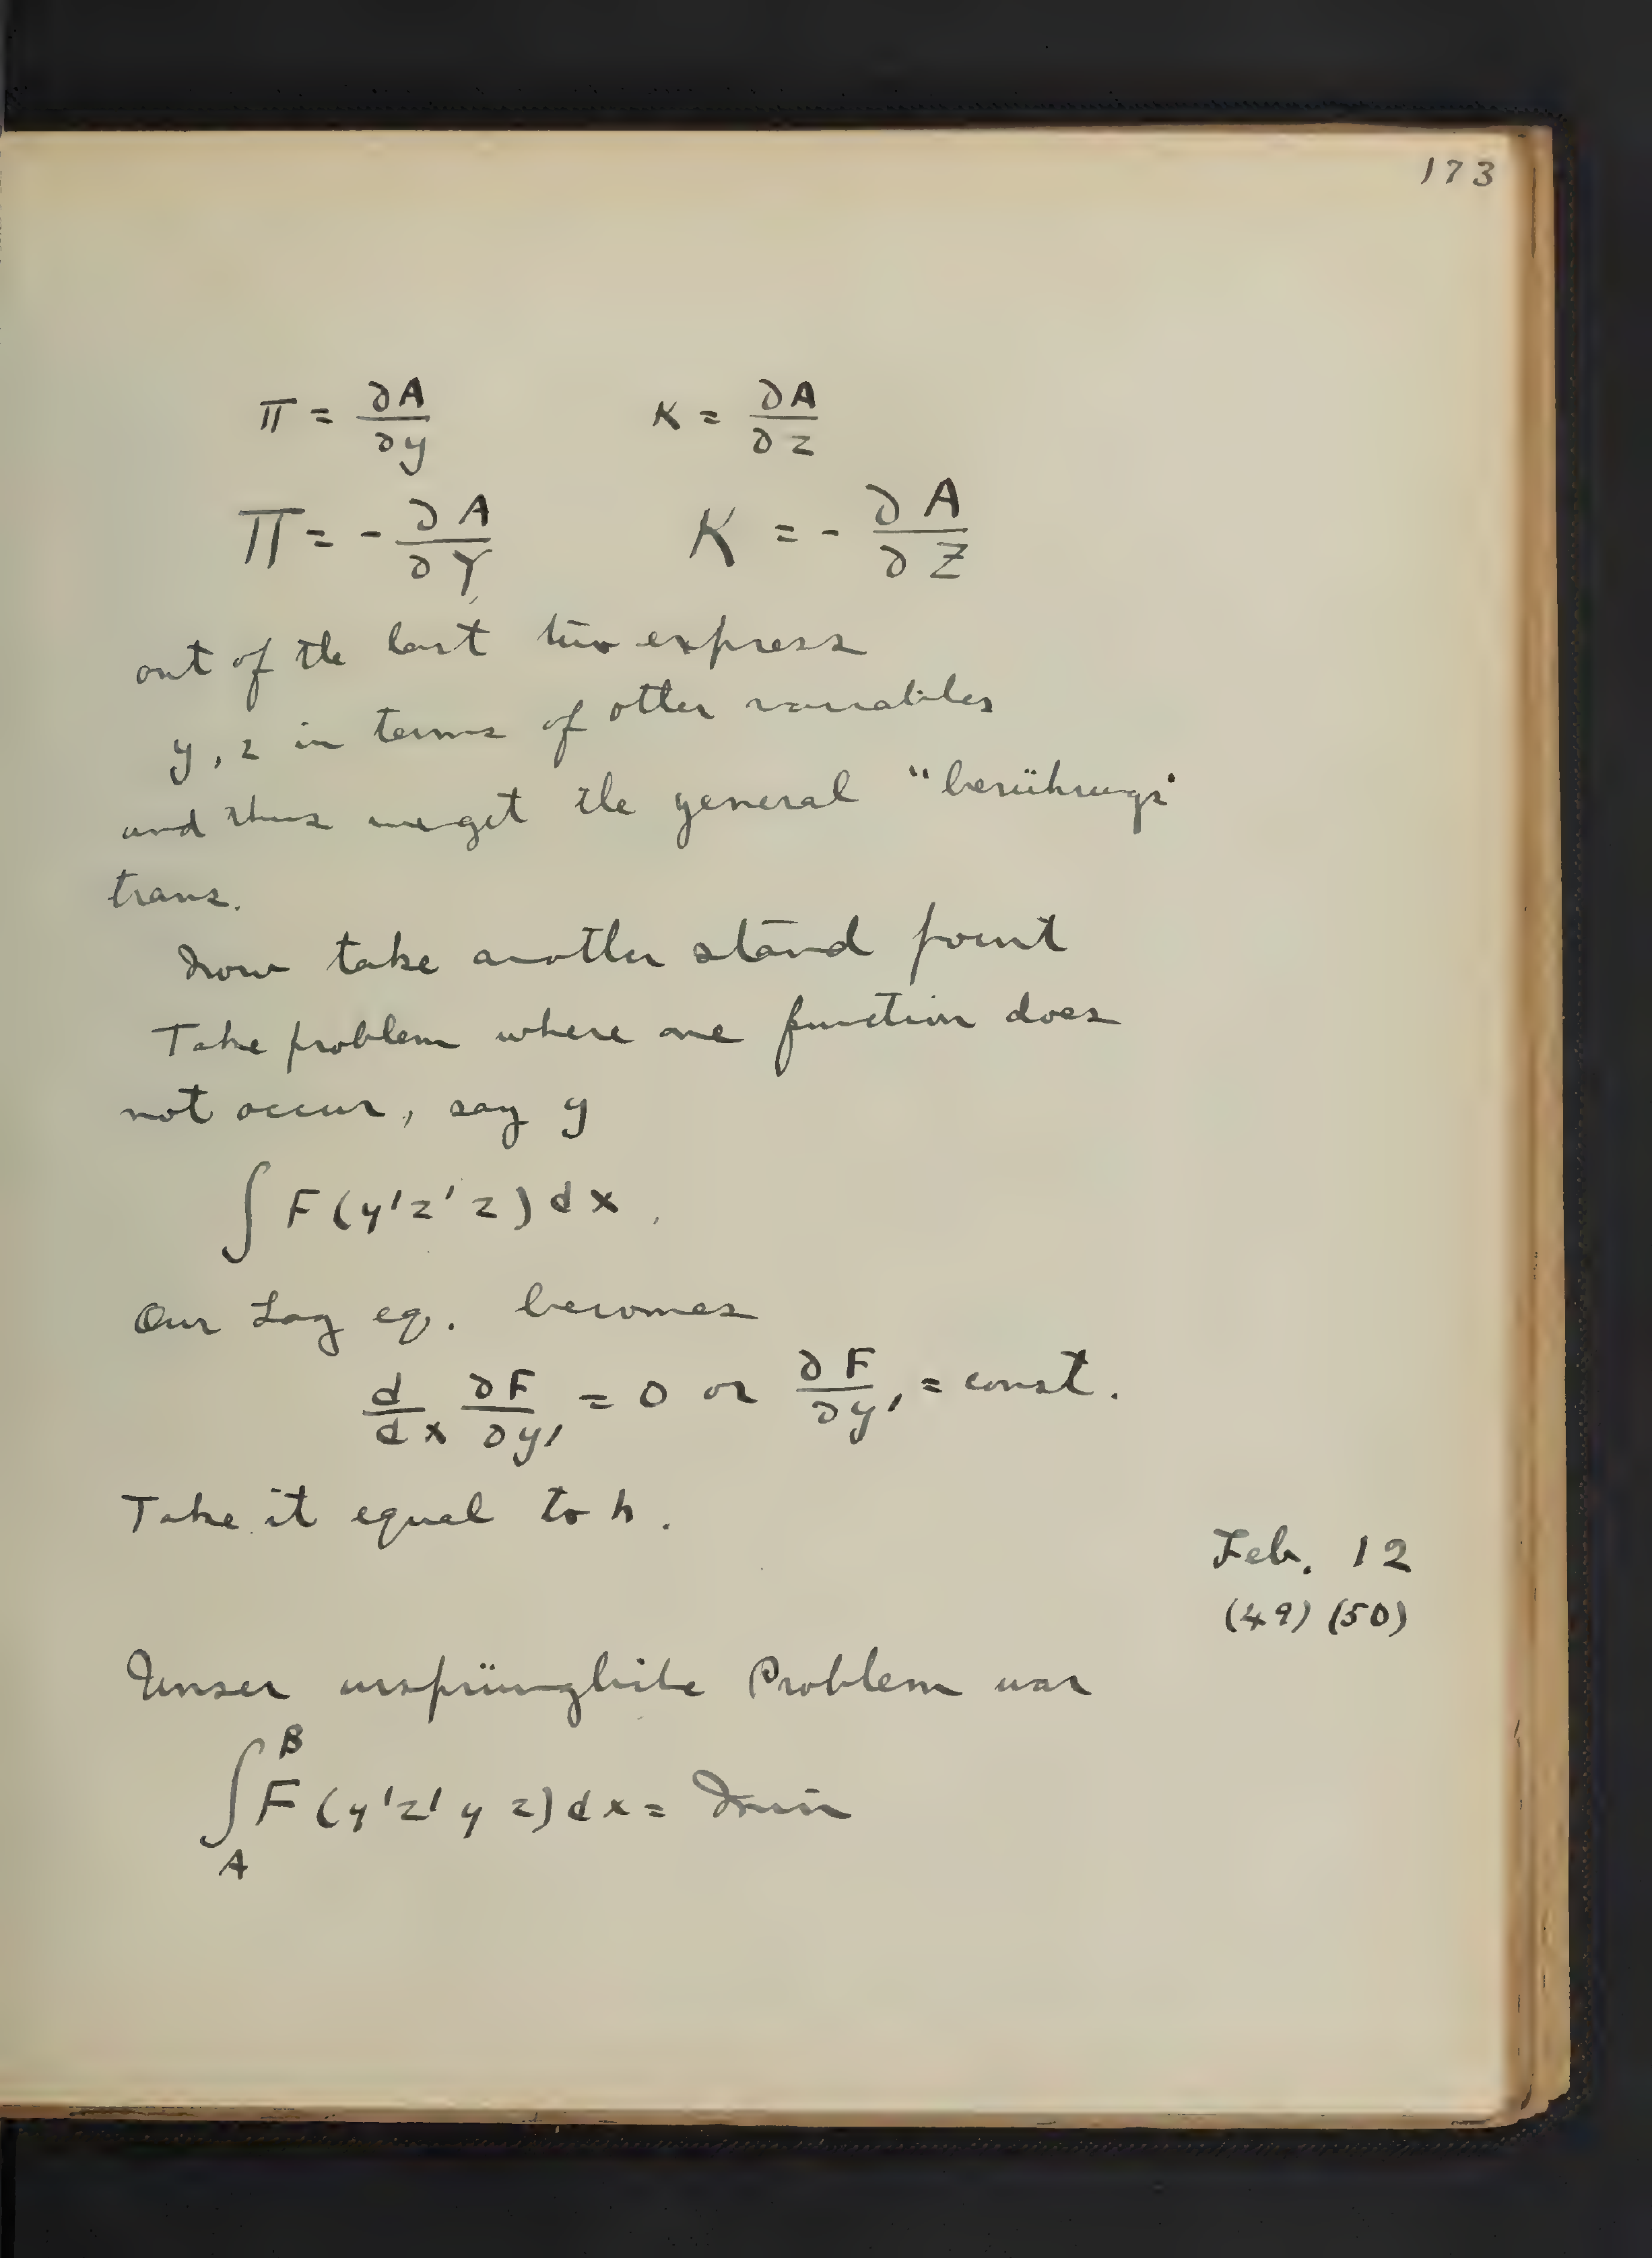 173
π = ∂A/∂y    κ = ∂A/∂z
Π = - ∂A/∂Y    K = - ∂A/∂Z
out of the last two express
y, z in terms of other variables
and thus we get the general "berührungs"
trans.
Now take another stand point
Take problem where one function does
not occur, say y
∫ F(y'z' z) dx.
Our Lag eq. becomes
d/dx ∂F/∂y' = 0 or ∂F/∂y' = const.
Take it equal to h.
Feb. 12
(49) (50)
Unser ursprünglich Problem war
∫_A^B F(y'z' y z) dx = Min